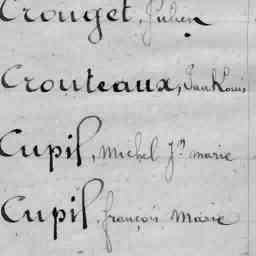 Crouget, Julien
Crouteaux, Jean Louis
Cupil, Michel Jn marie
Cupil, françois Marie